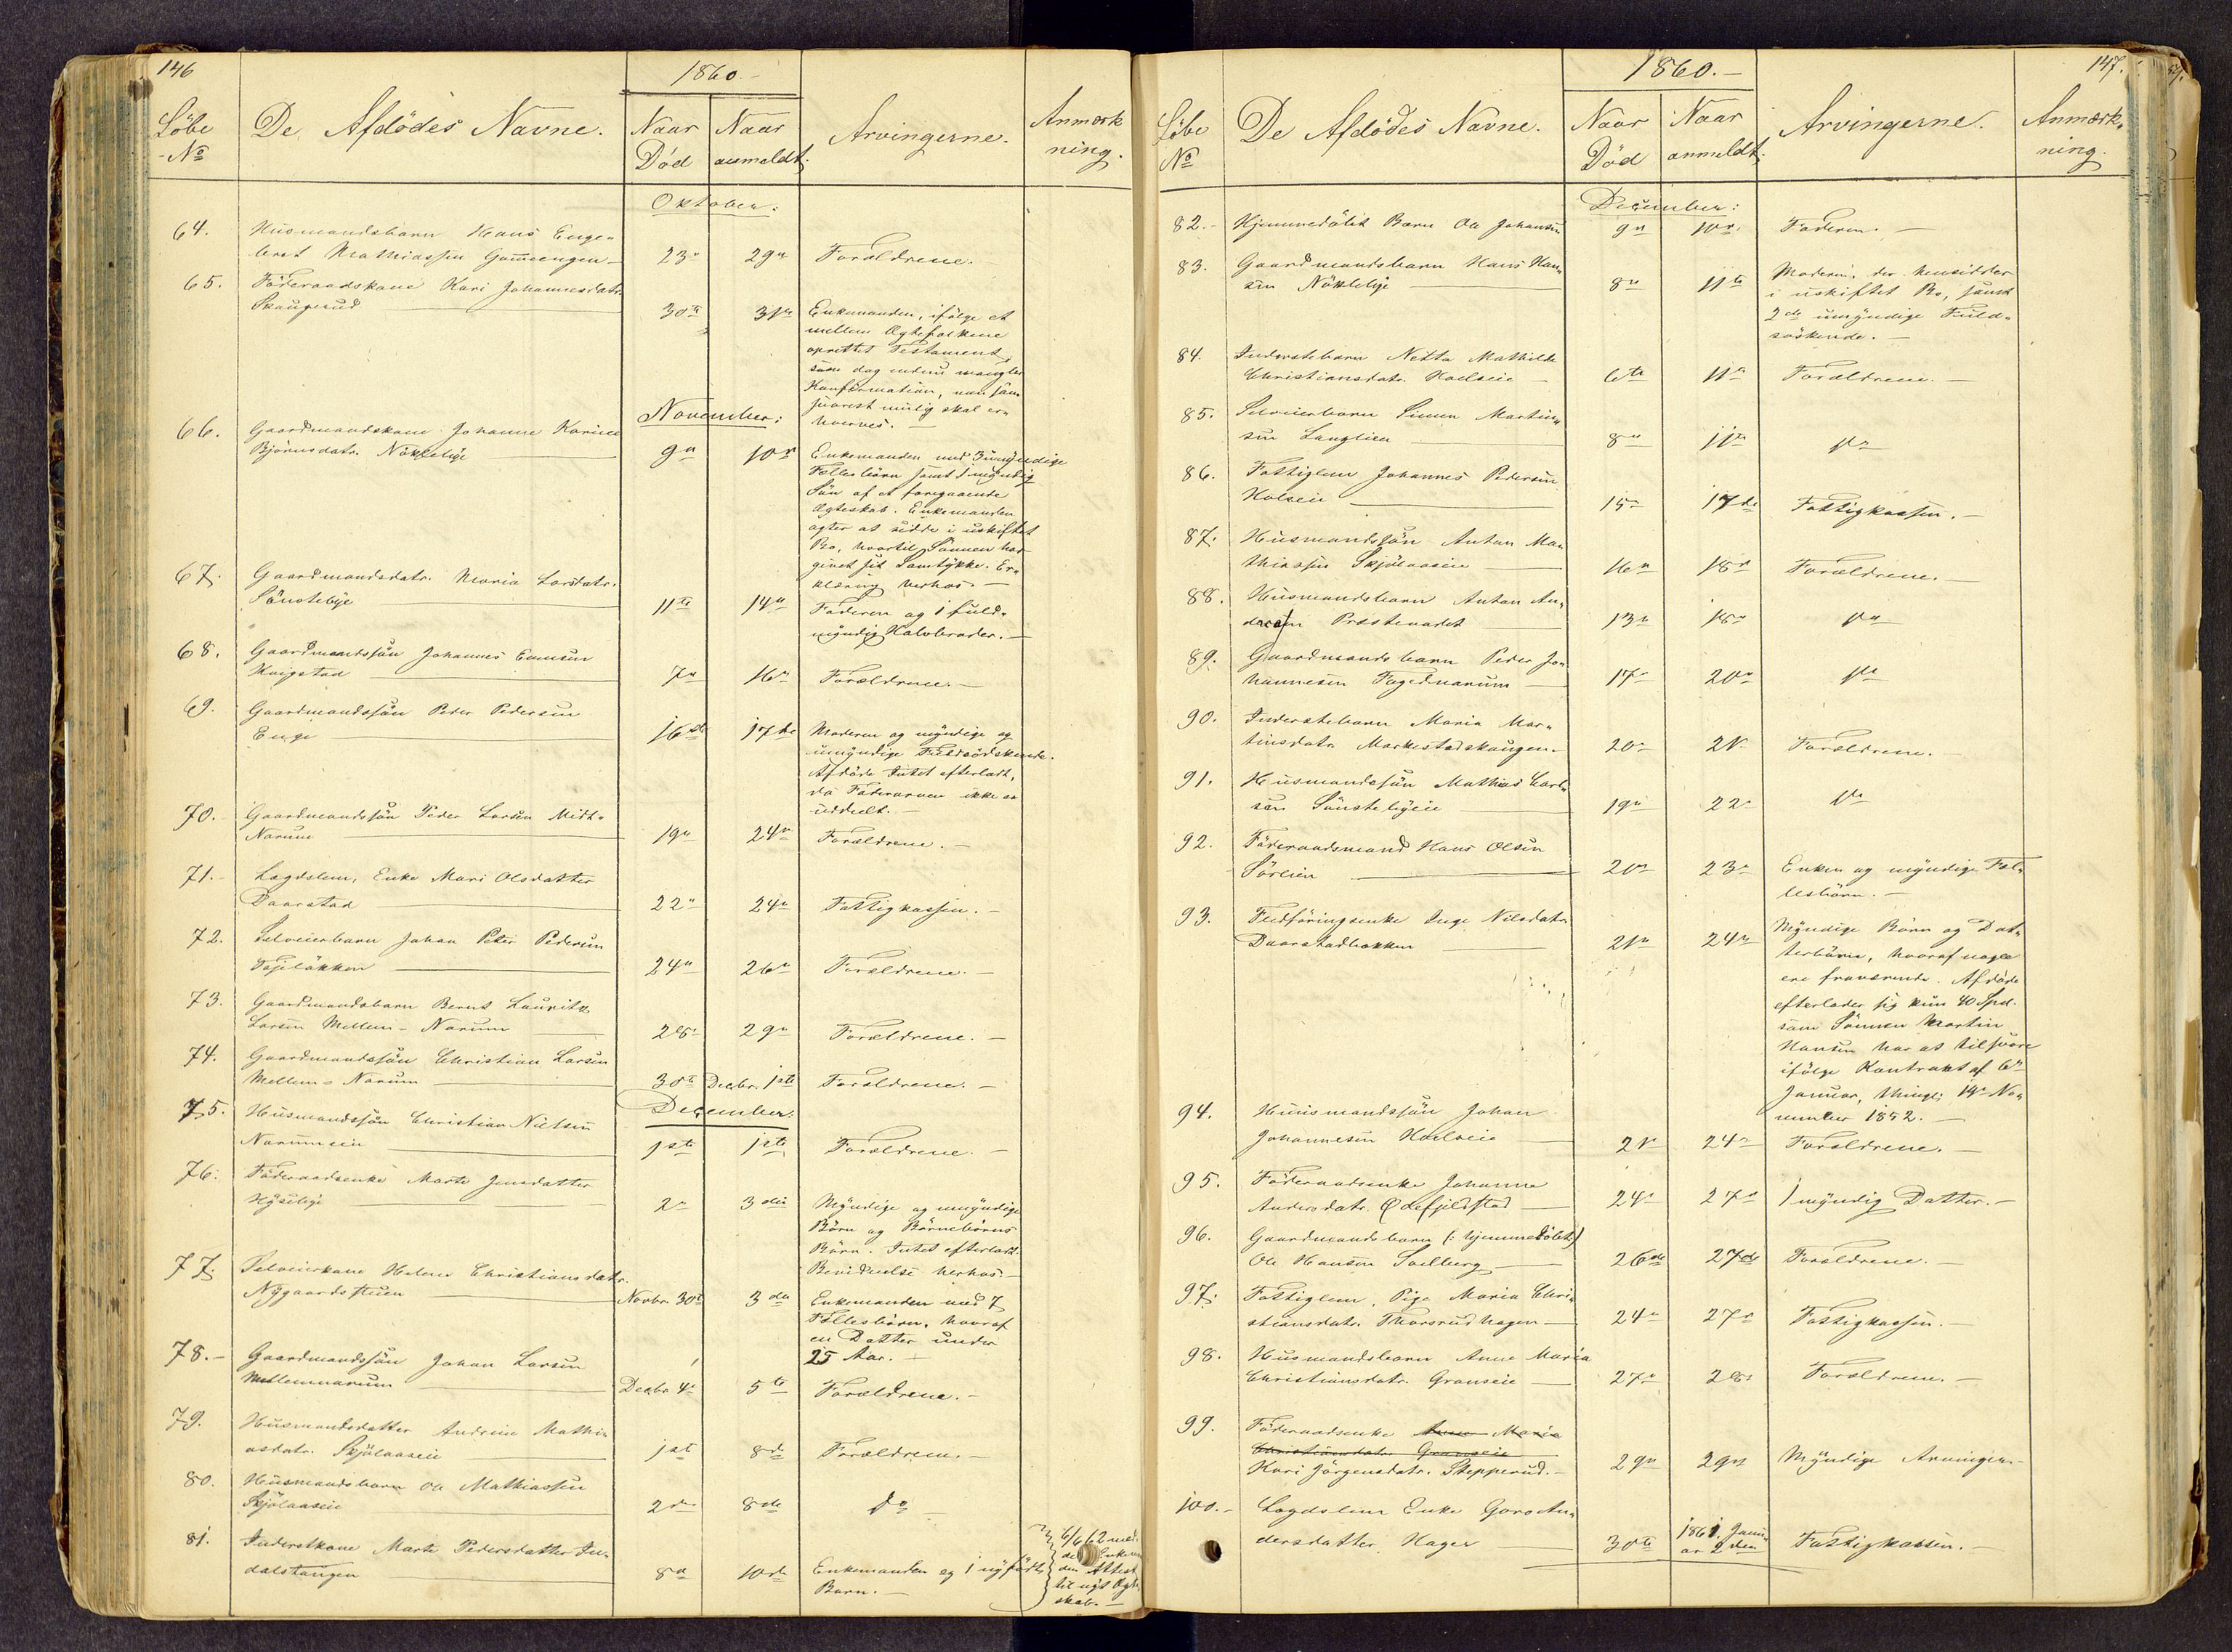 146
1860.-
Löbe
No
De Afdödes Navne.
Naar
Död
Naar
anmeldt.
Arvingerne.
Anmærk
ning.
Oktober:
64. Husmandsbarn Hans Enge-
bret Mathiassen 23 29 Forældrene.
65. Föderaadskone Kari Johannesdatr.
Skaugerud 30te 31te Enkemanden, ifölge et
mellem Ægtefolkene
oprettet Testament,
som dog endnu mangler
Konfirmation, som
snarest mulig skal er-
hverves.
November:
66. Gaardmandskone Johanne Karine
Björnsdatr. Nökleby 9 10 Enkemanden med 3 umyndige
Fællesbörn samt 1 myndig
Sön af et foregaaende
Ægteskab. Enkemanden
agter at sidde i uskiftet
Bo, hvortil Sönnen har
givet sit Samtykke. Er-
klæring herhos.
67. Gaardmandsdatr. Maria Larsdatr.
Sönsteby 11te 14 Faderen og 1 fuld-
myndig Halvbroder.
68. Gaardmandssön Johannes Evensen
7 16 Forældrene.
69. Gaardmandssön Peder Pedersen
Enge 16de 17de Moderen og myndige og
umyndige Fuldsödskende.
Afdöde Intet efterladt,
da Fædrearven ikke er
uddeelt.
70. Gaardmandssön Peder Larsen Midt-
Narum 19 24 Forældrene.
71. Lægdslem, Enke Mari Olsdatter
Daarstad 22 24 Fattigkassen.
72. Selveierbarn Johan Peter Pedersen
24 26 Forældrene.
73. Gaardmandsbarn Bernt Lauritz
Larsen Mellem-Narum 28 29 Forældrene.
74. Gaardmandssön Christian Larsen
Mellem-Narum 30te Decbr. 1ste Forældrene.
December.
75. Husmandssön Christian Nielsen
Narumseie 1ste 1ste Forældrene.
76. Föderaadsenke Marte Jensdatter
2 3die Myndige og umyndige
Börn og Börnebörns
Börn. Intet efterladt.
Bevidnelse herhos.
77. Selveierkone Helene Christiansdatr.
Nygaardsstuen Novbr. 30te 3die Enkemanden med 7
Fællesbörn, hvoraf
en Datter under
25 Aar.
78. Gaardmandssön Johan Larsen
Mellemnarum Decbr. 4 5te Forældrene.
79. Husmandsdatter Andrine Mathi-
asdatr. Skjölaaseie 1ste 8de Forældrene.
80. Husmandsbarn Ole Mathiassen
Skjölaaseie 2 8de do
81. Inderstkone Marte Pedersdatter In-
dalstangen 8 10de Enkemanden og 1 nyfödt
Barn.
6/6 62 med-
den Attest
til nyt Ægte-
skab.
147.
1860.-
Löbe
No
De Afdödes Navne.
Naar
Död
Naar
anmeldt.
Arvingerne.
Anmærk-
ning.
December:
82. Hjemmedöbt Barn Ole Johansen 9 10 Faderen.
83. Gaardmandsbarn Hans Han-
sen Nökleby 8 11te Moderen, der hensidder
i uskiftet Bo, samt
2de umyndige Fuld-
söskende.
84. Inderstebarn Netta Mathilde
Christiansdatr. Hoelseie 6te 11 Forældrene.
85. Selveierbarn Simen Martin-
sen Langlien 8 11te do
86. Fattiglem Johannes Pedersen
Holseie 15 17de Fattigkassen.
87. Husmandssön Anton Ma-
thiassen Skjölaaseie 16 18 Forældrene.
88. Husmandsbarn Anton An-
dresen Præstevadet 13 18 do
89. Gaardmandsbarn Peder Jo-
hannesen Fagernarum 17 20 do
90. Inderstebarn Maria Mar-
tinsdatr. Markestadskaugen 20 21 Forældrene.
91. Husmandssön Mathias Carl-
sen Sönstebyeie 19 22 do
92. Föderaadsmand Hans Olsen
Sörlien 20 23 Enken og myndige Fæl-
lesbörn.
93. Fledföringsenke Inge Nilsdatr.
Daarstadbakken 21 24 Myndige Börn og Dat-
terbörn, hvoraf nogle
ere fraværende. Afdöde
efterlader sig kun 40 Spd.
som Sönnen Martin
Hansen har at tilsvare
ifölge Kontrakt af 6
Januar, thingl. 14 No-
vember 1852.
94. Husmandssön Johan
Johannesen Hoelseie 21 24 Forældrene.
95. Föderaadsenke Johanne
Andersdatr. Ödefjeldstad 24 27 1 myndig Datter.
96. Gaardmandsbarn (: hjemmedöbt:)
Ole Hansen Solberg 26de 27de Forældrene.
97. Fattiglem, Pige Maria Chri-
stiansdatr. Thorsrudhagen 24 27 Fattigkassen.
98. Husmandsbarn Anne Maria
Christiansdatr. Granseie 27 28 Forældrene.
99. Föderaadsenke Anne Maria
Christiansdatr. Granseie
Kari Jörgensdatr. Stepperud. 29 29 Myndige Arvinger.
100. Lægdslem Enke Goro An-
dersdatter Hager 30te 1861. Janu-
ar 2den Fattigkassen.